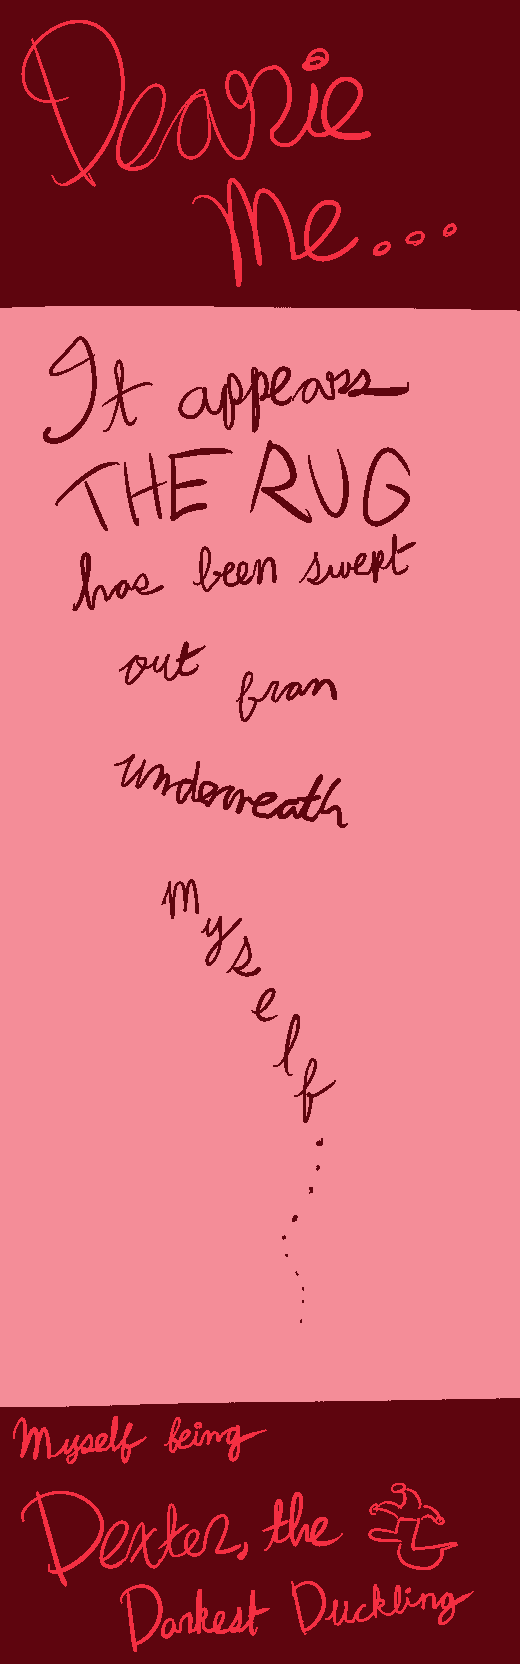 Dearie
Me...
It appears
THE RUG
has been swept
out from
underneath
myself..........
Myself being
Dexter, the
Darkest Duckling